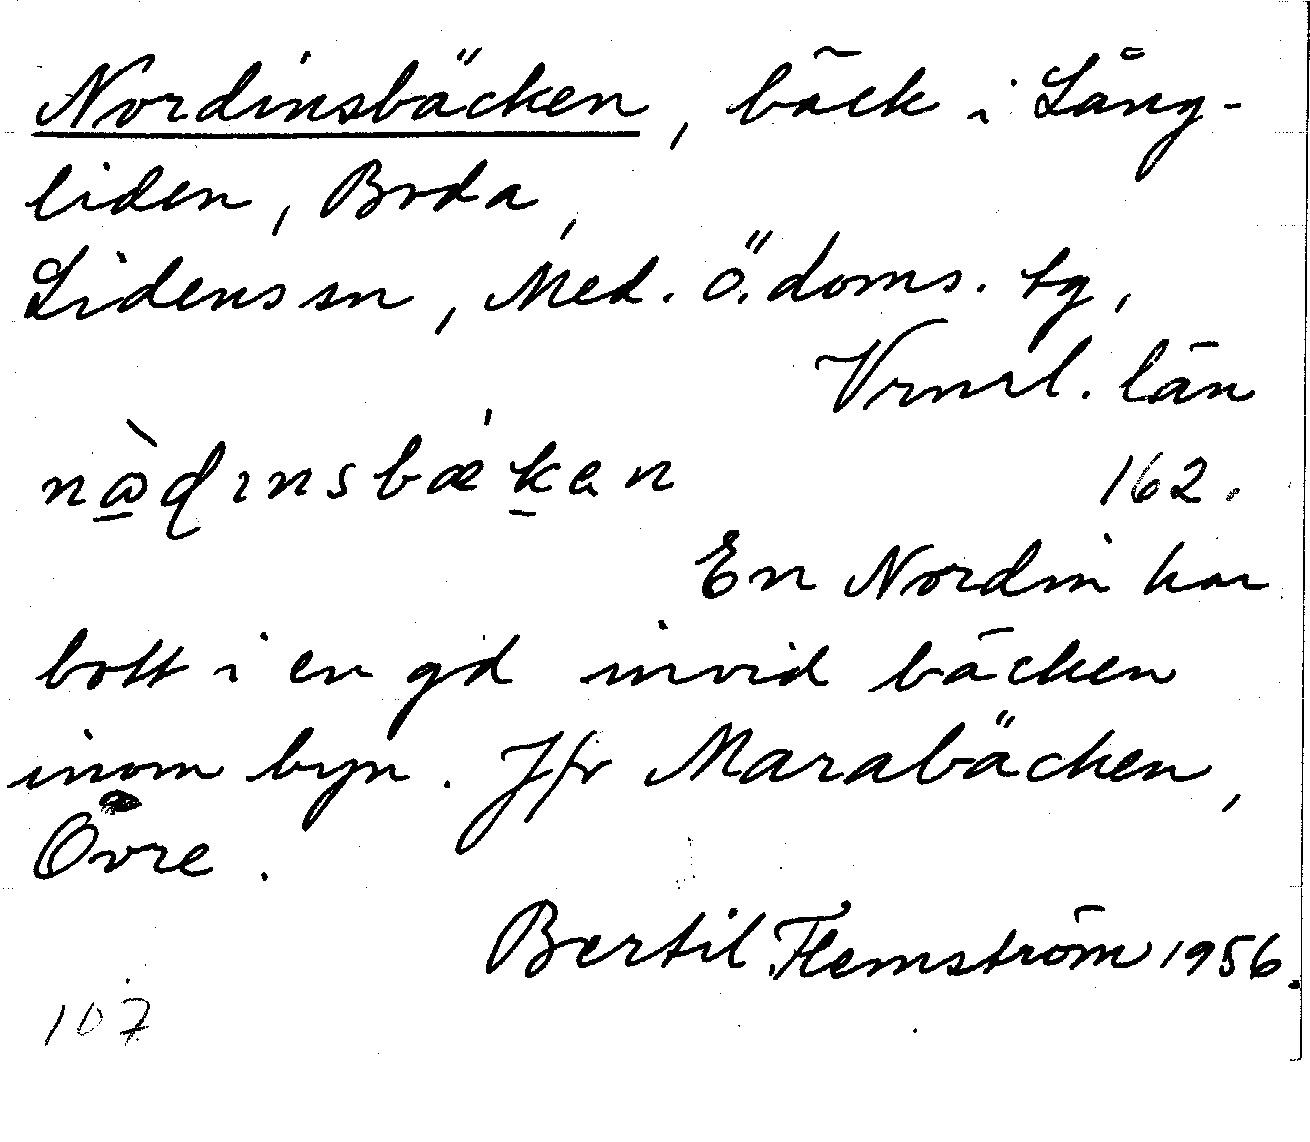 Nordinsbäcken, bäck i Lång-
liden, Boda,
Lidens sn, Med. ö. doms. tg,
Vrnrl. län
162.
En Nordin har
bott i en gd invid bäcken
inom byn. Jfr Marabäcken,
Övre.
Bertil Flemström 1956.
107